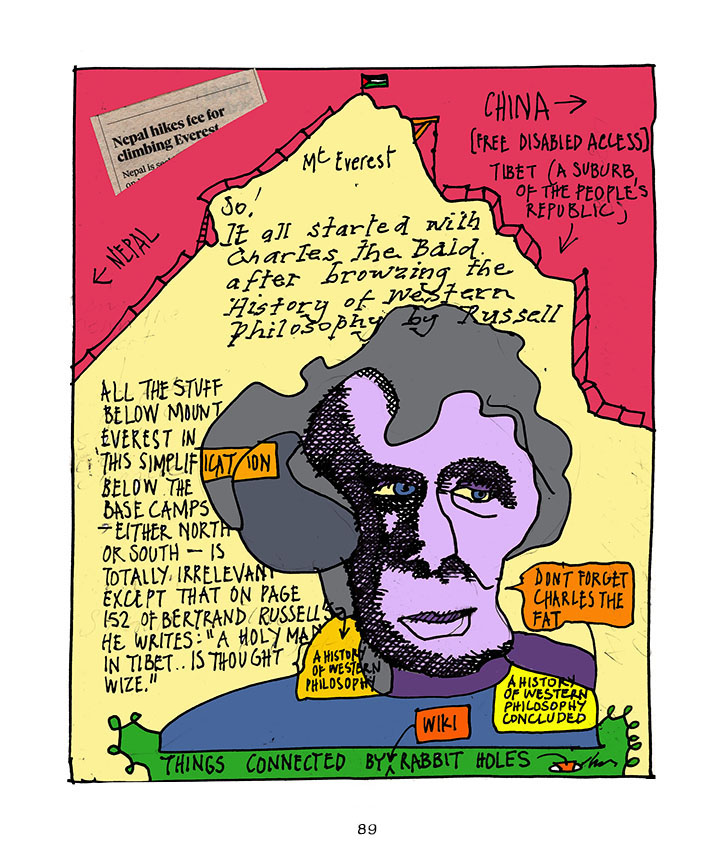 Nepal hikes fee for
climbing Everest
Nepal is
Mt Everest
CHINA →
[FREE DISABLED ACCESS]
TIBET (A SUBURB
OF THE PEOPLE'S
REPUBLIC)
← NEPAL
So!
It all started with
Charles the Bald.
after browzing the
History of Western
Philosophy by Russell
ALL THE STUFF
BELOW MOUNT
EVEREST IN
THIS SIMPLIFICATION
BELOW THE
BASE CAMPS
– EITHER NORTH
OR SOUTH – IS
TOTALLY IRRELEVANT
EXCEPT THAT ON PAGE
152 OF BERTRAND RUSSELL'S
HE WRITES: "A HOLY MAN
IN TIBET.. IS THOUGHT
WIZE."
A HISTORY
OF WESTERN
PHILOSOPHY
DONT FORGET
CHARLES THE
FAT
A HISTORY
OF WESTERN
PHILOSOPHY
CONCLUDED
WIKI
THINGS CONNECTED BY RABBIT HOLES
89